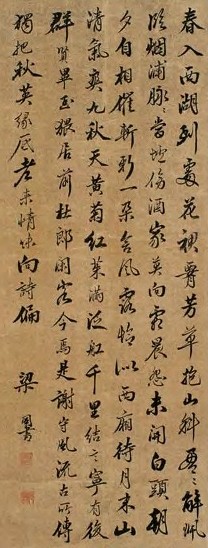 春入西湖到處花裙腰芳草抱山斜盈〻解佩
臨烟浦脉〻當壚傍酒家莫向霜晨怨未開白頭朝
夕自相催斬新一朶含風露恰似西廂待月來山
清氣爽九秋天黃菊紅茱滿泛船千里結言寧有後
群賢畢至猥居前杜郎閑客今焉是謝守風流古所傳
獨把秋英緣底老來情味向詩偏
梁同書